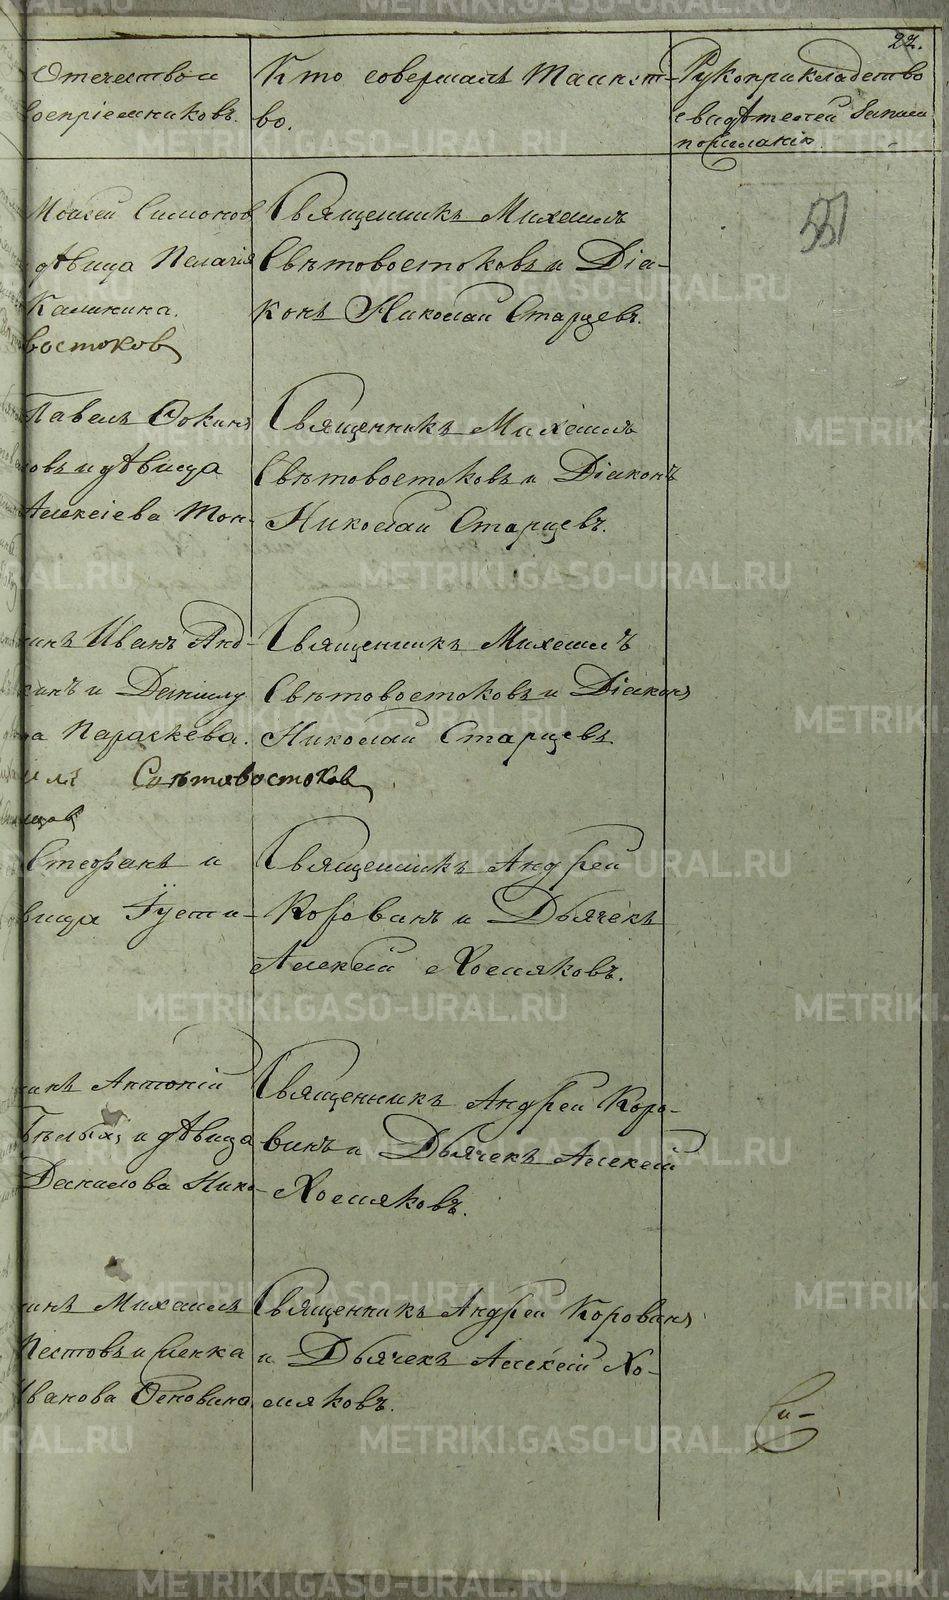 22.
Отечество и
воспріемниковъ.
Кто совершалъ таинст-
во.
Рукоприкладство
свидѣтелей записи
по желанію.
Моисей Симонов
дѣвица Пелагія
Калинина.
востоков
Священникъ Михаилъ
Свѣтовостоковъ и Діа-
конъ Николай Старцевъ.
Павелъ Фокинъ
овъ и дѣвица
Алексіева Тон-
Священникъ Михаилъ
Свѣтовостоковъ и Діаконъ
Николай Старцевъ.
инъ Иванъ Анд-
кинъ и Данилу
ва Параскева.
илъ Свѣтовостоков
Священникъ Михаилъ
Свѣтовостоковъ и Діаконъ
Николай Старцевъ
Стефанъ и
вица Іусти-
Священникъ Андрей
Корованъ и Дьячекъ
Алексій Хомяковъ.
инъ Антоній
Бѣлыхъ и дѣвица
Данилова Нико-
Священникъ Андрей Коро-
винъ и Дьячекъ Алексій
Хомяковъ.
инъ Михаилъ
Пестовъ и женка
Иванова
Священникъ Андрей Корованъ
и Дьячекъ Алексій Хо-
мяковъ.
METRIKI.GASO-URAL.RU